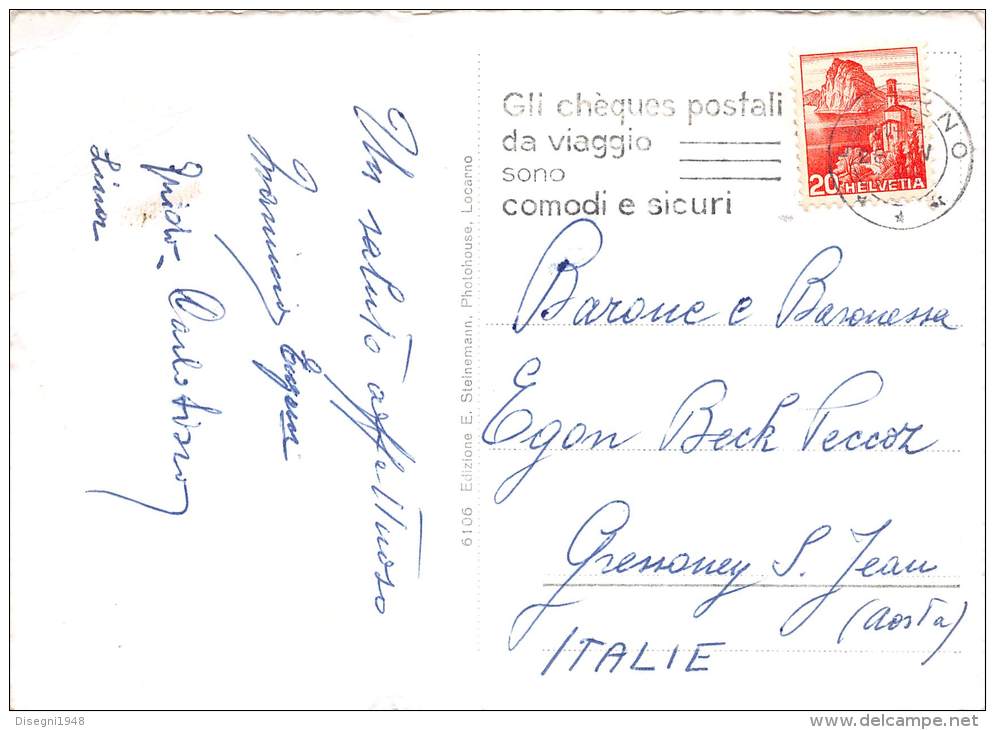 Un saluto affettuoso
Guido
Gli chèques postali
da viaggio
sono
comodi e sicuri
20 HELVETIA
6106 Edizione E. Steinemann, Photohouse, Locarno
Barone e Baronessa
Egon Beck Peccoz
Gressoney S. Jean
(Aosta)
ITALIE
Disegni1948
delcampe.net